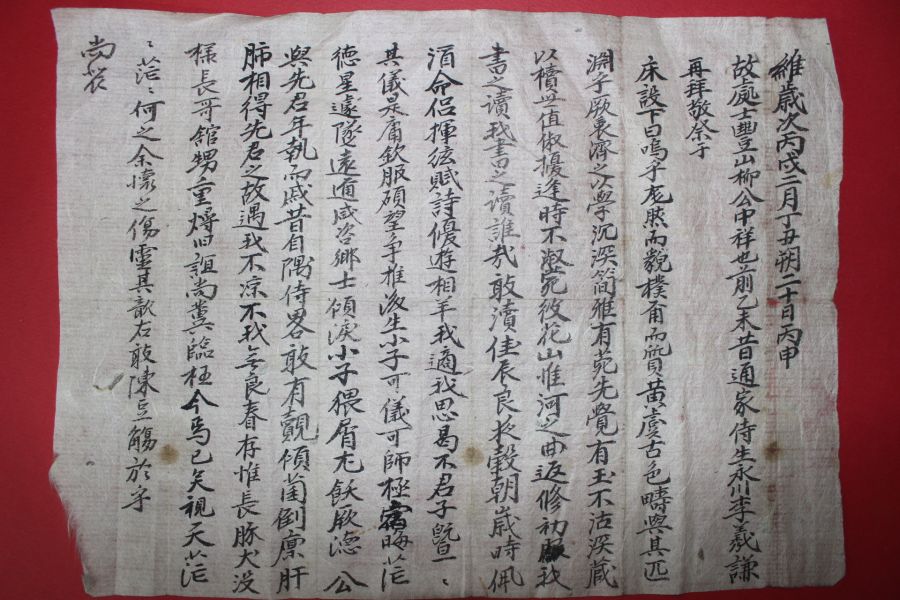 維歲次丙戌二月丁丑朔二十日丙申
故處士豐山柳公中祥也前乙未昔通家侍生永川李羲謙
再拜敬奈于
床設下曰嗚乎厖然而貌樸甫而質黃虞古色疇與其匹
淵乎厥衷濟之以學沉深簡雅有菀先覺有玉不沽深藏
以櫝世值俶擾逢時不淑宛彼花山惟河之曲返修初服我
書之讀我書之讀誰哉敢瀆佳辰良夜穀朝歲時佩
酒命侶揮絃賦詩優遊相羊我適我思曷不君子曁〻
其儀是庸欽服碩望爭推後生小子可儀可師極宿晦茫
德星遽隧遠通咸咨鄉士傾淚小子猥屑尤飫厥德 公
與先君年執而戚昔自隅侍畧敢有覿傾菌倒廩肝
肺相得先君之故遇我不凉不我無良眷存惟長豚犬沒
樣長哥舘甥重㷞旧誼尚冀臨極今焉已矣視天茫
〻茫〻何之余懷之傷靈其歆右敢陳立觴於乎
尚饗